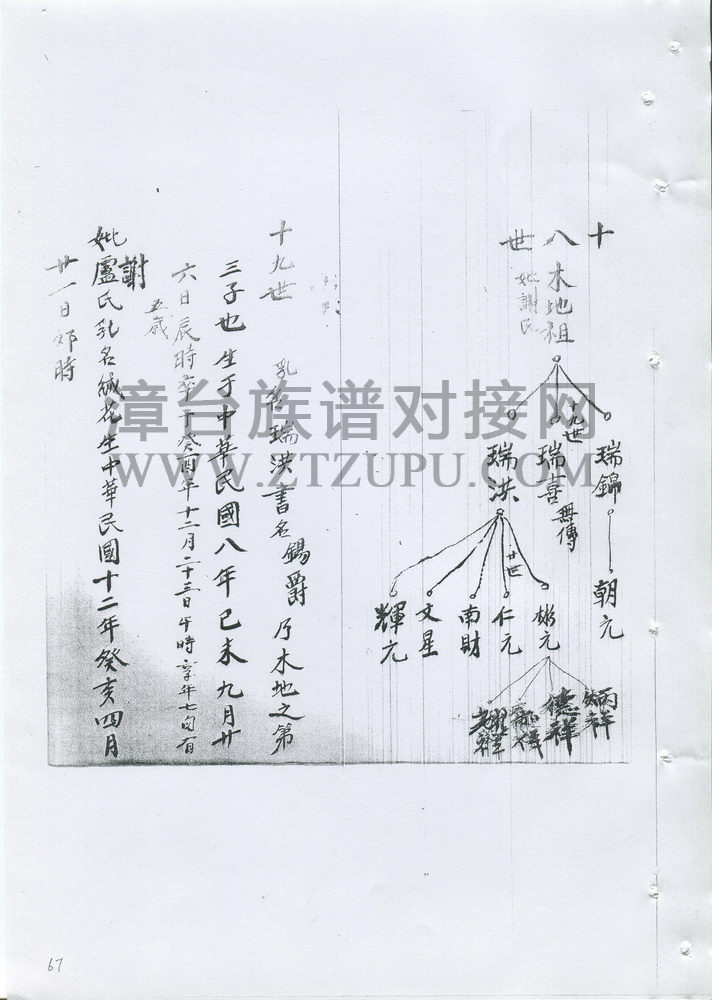 十八世
木地祖
妣謝氏
十九世
瑞錦
瑞喜
無傳
瑞洪
朝元
廿世
彬元
仁元
南財
文星
輝元
炳祥
德祥
十九世
乳名瑞洪書名錫爵乃木地之第
三子也生于中華民國八年己未九月廿
六日辰時卒于癸酉年十二月二十三日午時享年七旬有
五歲
妣謝盧氏乳名緘花生中華民國十二年癸亥四月
廿一日卯時
漳台族谱对接网
WWW.ZTZUPU.COM
67